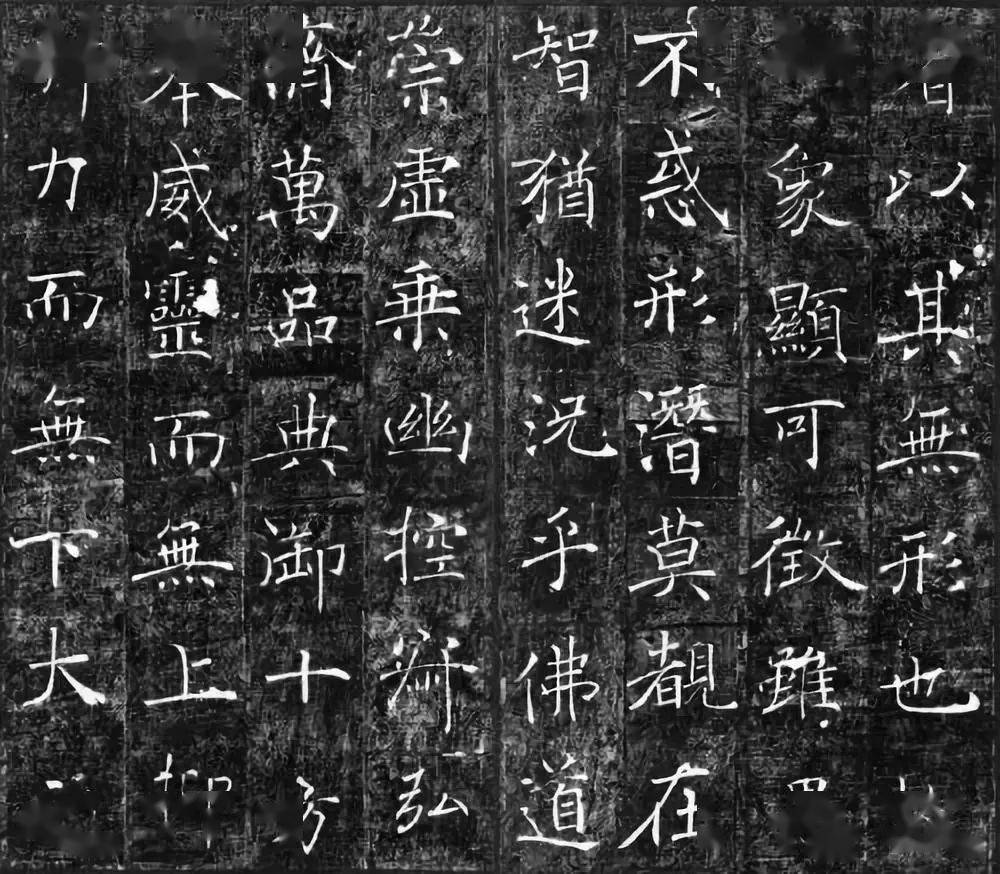 者以其無形也
象顯可徵雖
不惑形潛莫覩在
智猶迷況乎佛道
崇虛乘幽控寂弘
濟萬品典御十方
威靈而無上抑
力而無下大